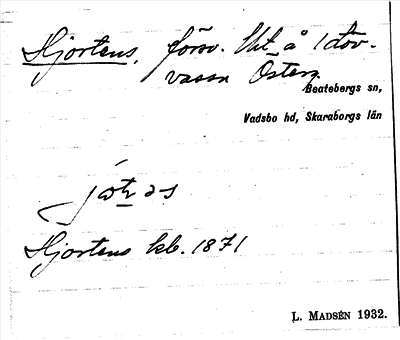 Hjortens, försv. Ut å Idöv-
vassa Österg.
Beatebergs sn,
Vadsbo hd, Skaraborgs län
Hjortens kb. 1871
L. MADSÉN 1932.